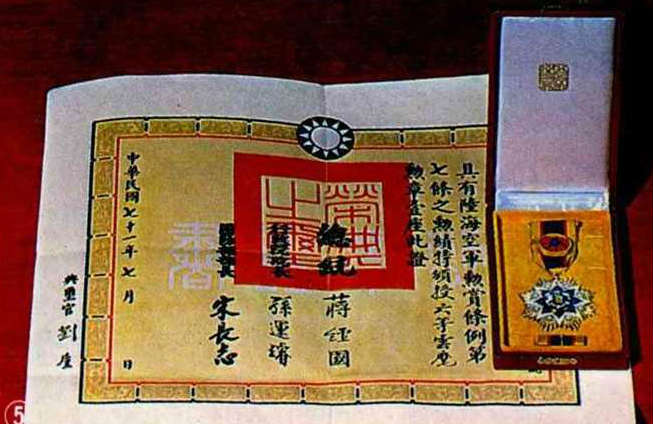 具有陸海空軍勳賞條例第
七條之勳績特頒授六等雲麾
勳章壹座此證
榮典之璽
總統 蔣經國
行政院院長 孫運璿
國防部部長 宋長志
中華民國七十一年七月 日
典璽官 劉垕
⑤